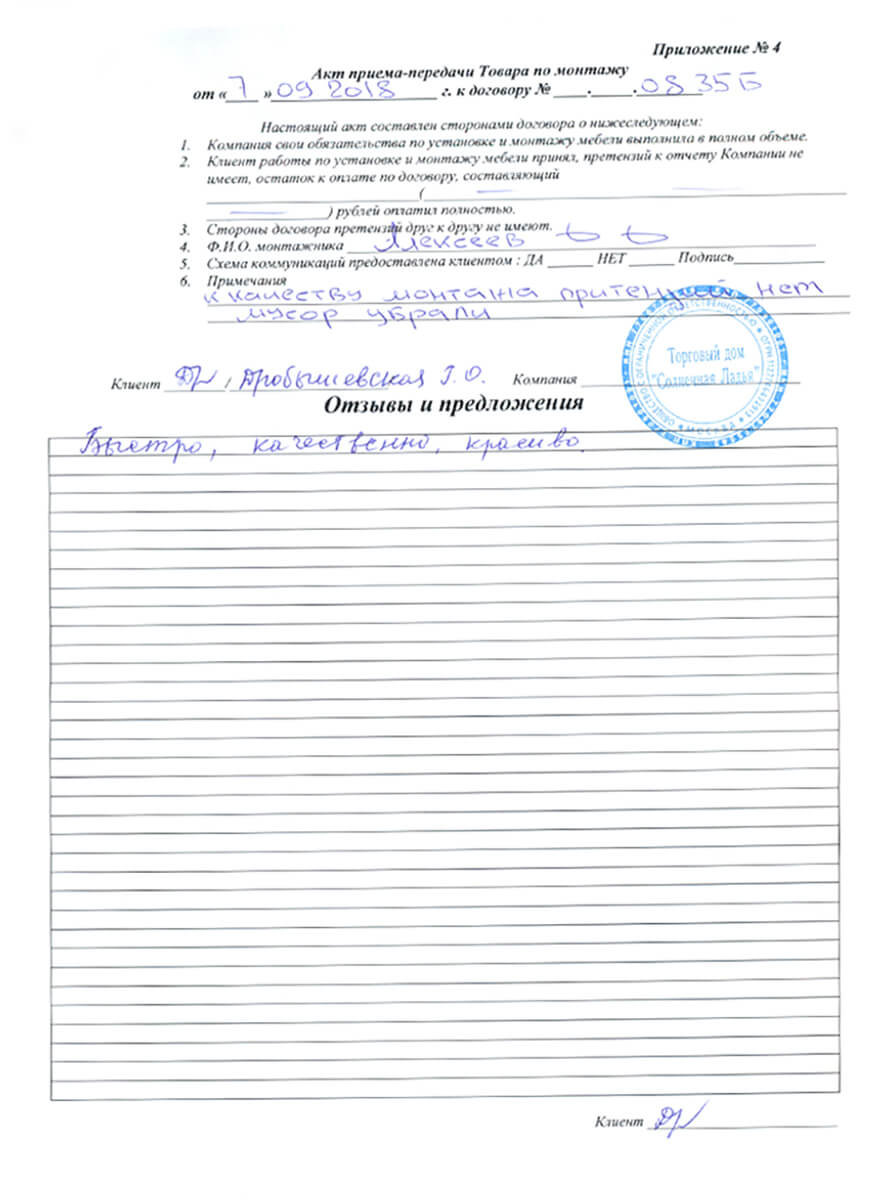 Приложение № 4
Акт приема-передачи Товара по монтажу
от « 7 » 09 2018 г. к договору № ____.____.0835Б
Настоящий акт составлен сторонами договора о нижеследующем:
1. Компания свои обязательства по установке и монтажу мебели выполнила в полном объеме.
2. Клиент работы по установке и монтажу мебели принял, претензий к отчету Компании не
имеет, остаток к оплате по договору, составляющий
(
) рублей оплатил полностью.
3. Стороны договора претензий друг к другу не имеют.
4. Ф.И.О. монтажника Алексеев
5. Схема коммуникаций предоставлена клиентом : ДА ______ НЕТ ______ Подпись____________
6. Примечания
к качеству монтажа притензий нет
мусор убрали
Торговый дом
"Солнечная Ладья"
ОБЩЕСТВО С ОГРАНИ�ченной ОТВЕТСТВЕННОСТЬЮ
МОСКВА
Клиент / Дробышевская Г.О. Компания
Отзывы и предложения
Быстро, качественно, красиво.
Клиент